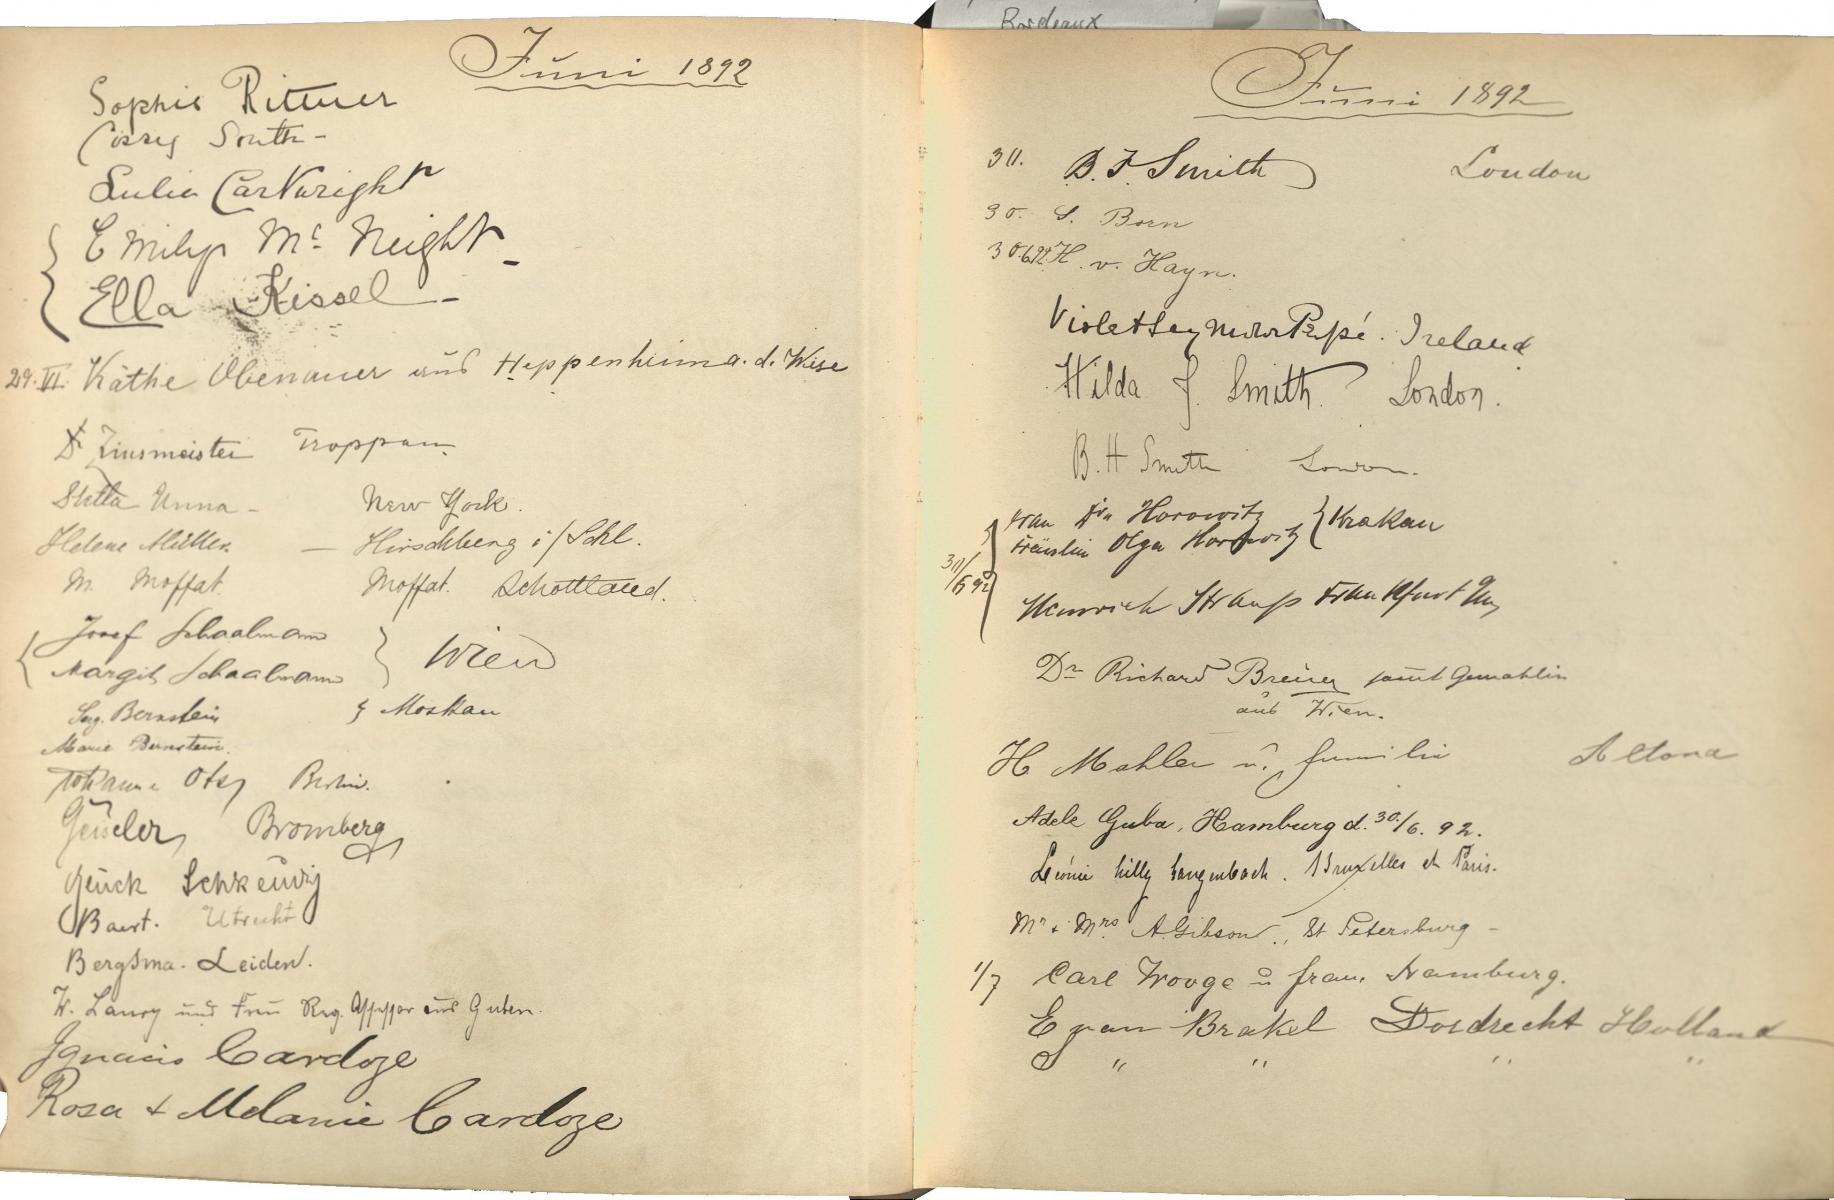 Bordeaux
Juni 1892
Sophie Rittner
Cossey South -
Julia Cartwright
Emily Mc Neight -
Ella Kissel -
29. VI. Käthe Obenauer aus Heppenheim a. d. Wise
Dr Zinsmeister Troppau.
Stella Unna - New York.
Helene Müller. — Hirschberg i/Schl.
M. Moffat. Moffat. Schottland.
Josef Schaalmann
Wien
Margit Schaalmann
Serg. Bernstein Moskau
Marie Bernstein.
Berlin.
Geiseler, Bromberg
Schkeuditz
Baert. Utrecht
Bergsma. Leiden.
W. und Frau Reg. Assessor aus Guben.
Ignacio Cardoze
Rosa & Melanie Cardoze
Juni 1892
30. B. F. Smith London
30. S. Born
30.6.92. H. v. Hayn.
Violet Seymour Ireland
Hilda J. Smith. London.
B. H Smith London.
Frau Dr. Horowitz
Krakau
Fräulein Olga Horowitz
30/6 92
Heinrich Strauß Frankfurt a/M
Dr Richard Breuer samt Gemahlin
aus Wien.
H Mahler u. Familie Altona
Adele Guba, Hamburg d. 30./6. 92.
Léonie Lilly Langenbach. Bruxelles et Paris.
Mr & Mrs A. Gibson, St Petersburg -
1/7 Carl Wooge u frau, Hamburg.
E van Brakel Dordrecht Holland
" " " "